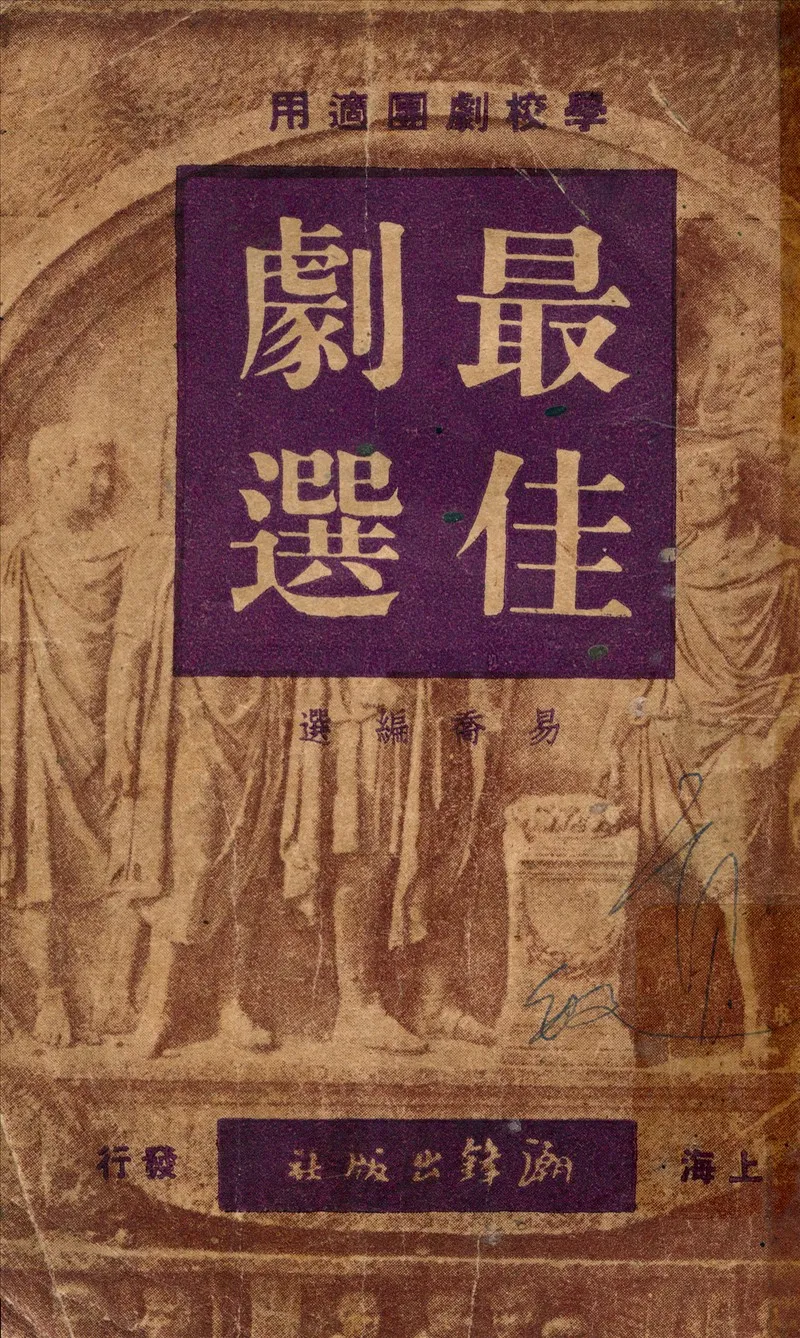 學校劇團適用
最佳
劇選
易喬編選
上海 潮鋒出版社 發行